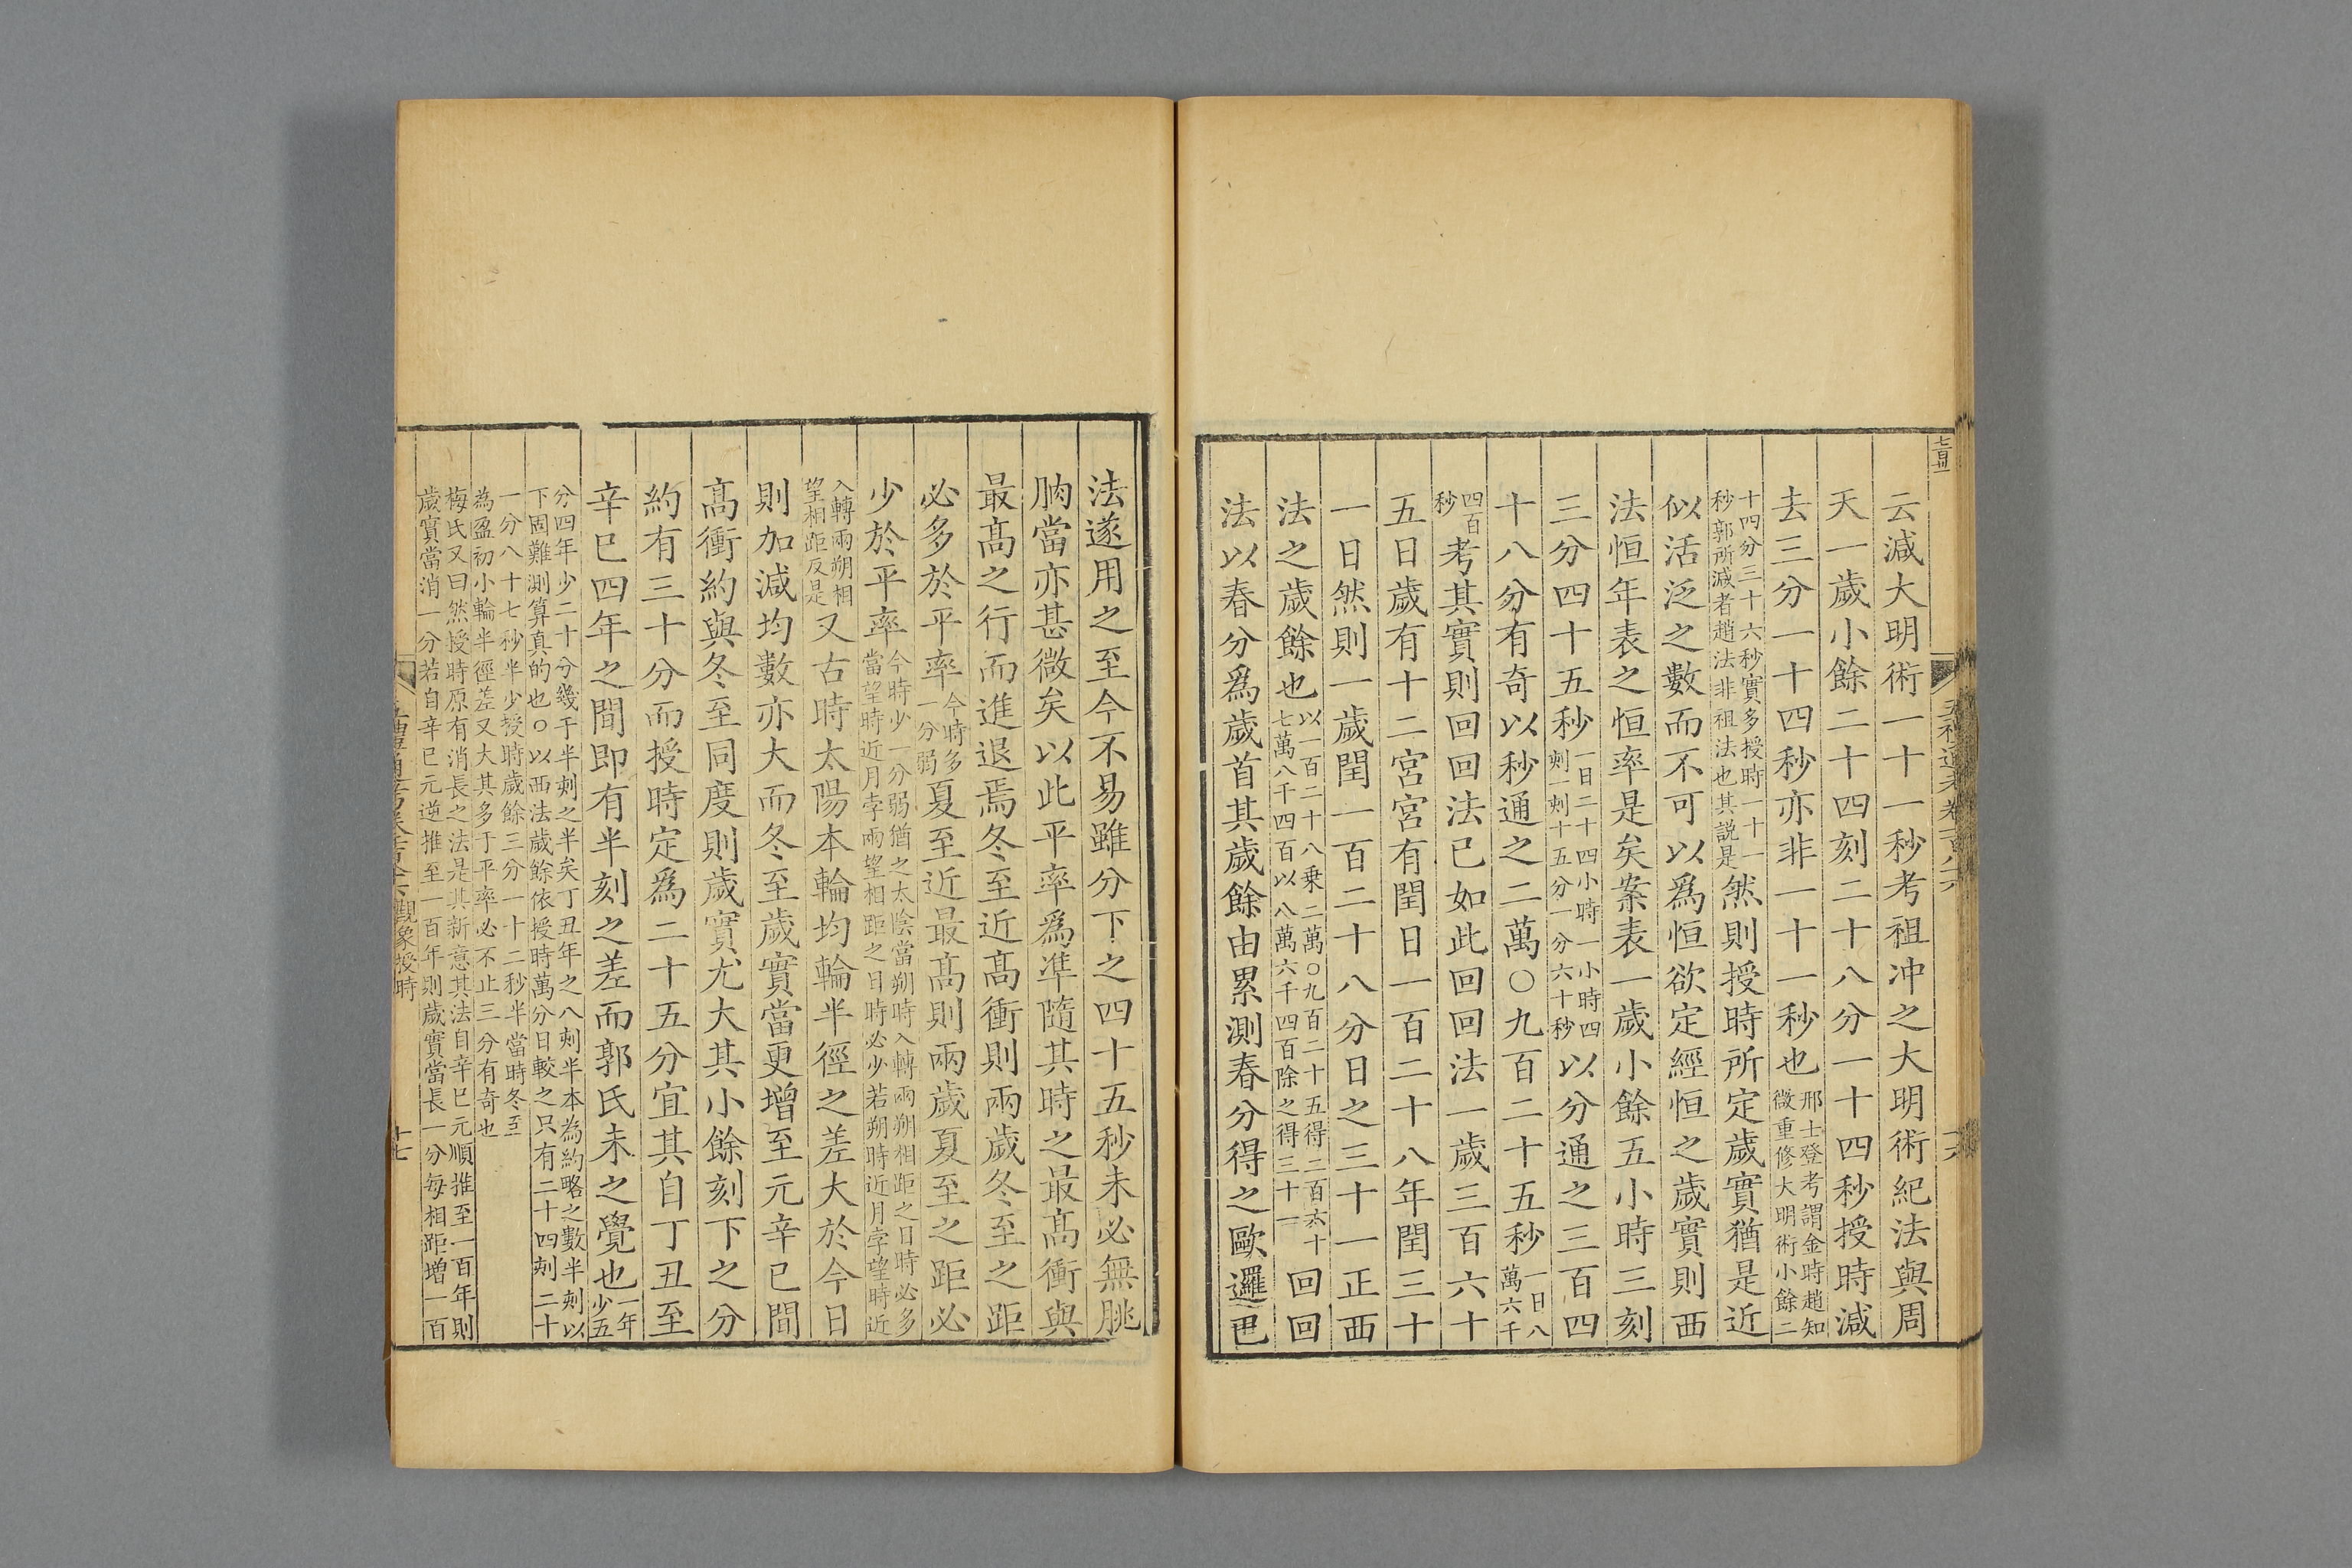 云減大明術一十一秒考祖冲之大明術紀法與周
天一歲小餘二十四刻二十八分一十四秒授時減
去三分一十四秒亦非一十一秒也邢士登考謂金時趙知微重修大明術小餘二
十四分三十六秒實多授時一十一秒郭所減者趙法非祖法也其説是然則授時所定歲實猶是近
似活泛之數而不可以爲恒欲定經恒之歲實則西
法恒年表之恒率是矣案表一歲小餘五小時三刻
三分四十五秒一日二十四小時一小時四刻一刻十五分一分六十秒以分通之三百四
十八分有奇以秒通之二萬〇九百二十五秒一日八萬六千
四百秒考其實則回回法已如此回回法一歲三百六十
五日歲有十二宮宮有閏日一百二十八年閏三十
一日然則一歲閏一百二十八分日之三十一正西
法之歲餘也以一百二十八乘二萬〇九百二十五得二百六十七萬八千四百以八萬六千四百除之得三十一回回
法以春分爲歲首其歲餘由累測春分得之歐邏巴
五禮通考卷一百八十六
十六
法遂用之至今不易雖分下之四十五秒未必無朓
朒當亦甚微矣以此平率爲準隨其時之最高衝與
最高之行而進退焉冬至近高衝則兩歲冬至之距
必多於平率今時多一分弱夏至近最高則兩歲夏至之距必
少於平率今時少一分弱猶之太陰當朔時入轉兩朔相距之日時必多當望時近月孛兩望相距之日時必少若朔時近月孛望時近
入轉兩朔相望相距反是又古時太陽本輪均輪半徑之差大於今日
則加減均數亦大而冬至歲實當更增至元辛巳間
高衝約與冬至同度則歲實尤大其小餘刻下之分
約有三十分而授時定爲二十五分宜其自丁丑至
辛巳四年之間即有半刻之差而郭氏未之覺也一年少五
分四年少二十分幾于半刻之半矣丁丑年之八刻半本為約略之數半刻以
下固難測算真的也〇以西法歲餘依授時萬分日較之只有二十四刻二十
一分八十七秒半少授時歲餘三分一十二秒半當時冬至
為盈初小輪半徑差又大其多于平率必不止三分有奇也
梅氏又曰然授時原有消長之法是其新意其法自辛巳元順推至一百年則
歲實當消一分若自辛巳元逆推至一百年則歲實當長一分每相距增一百
觀象授時
十七